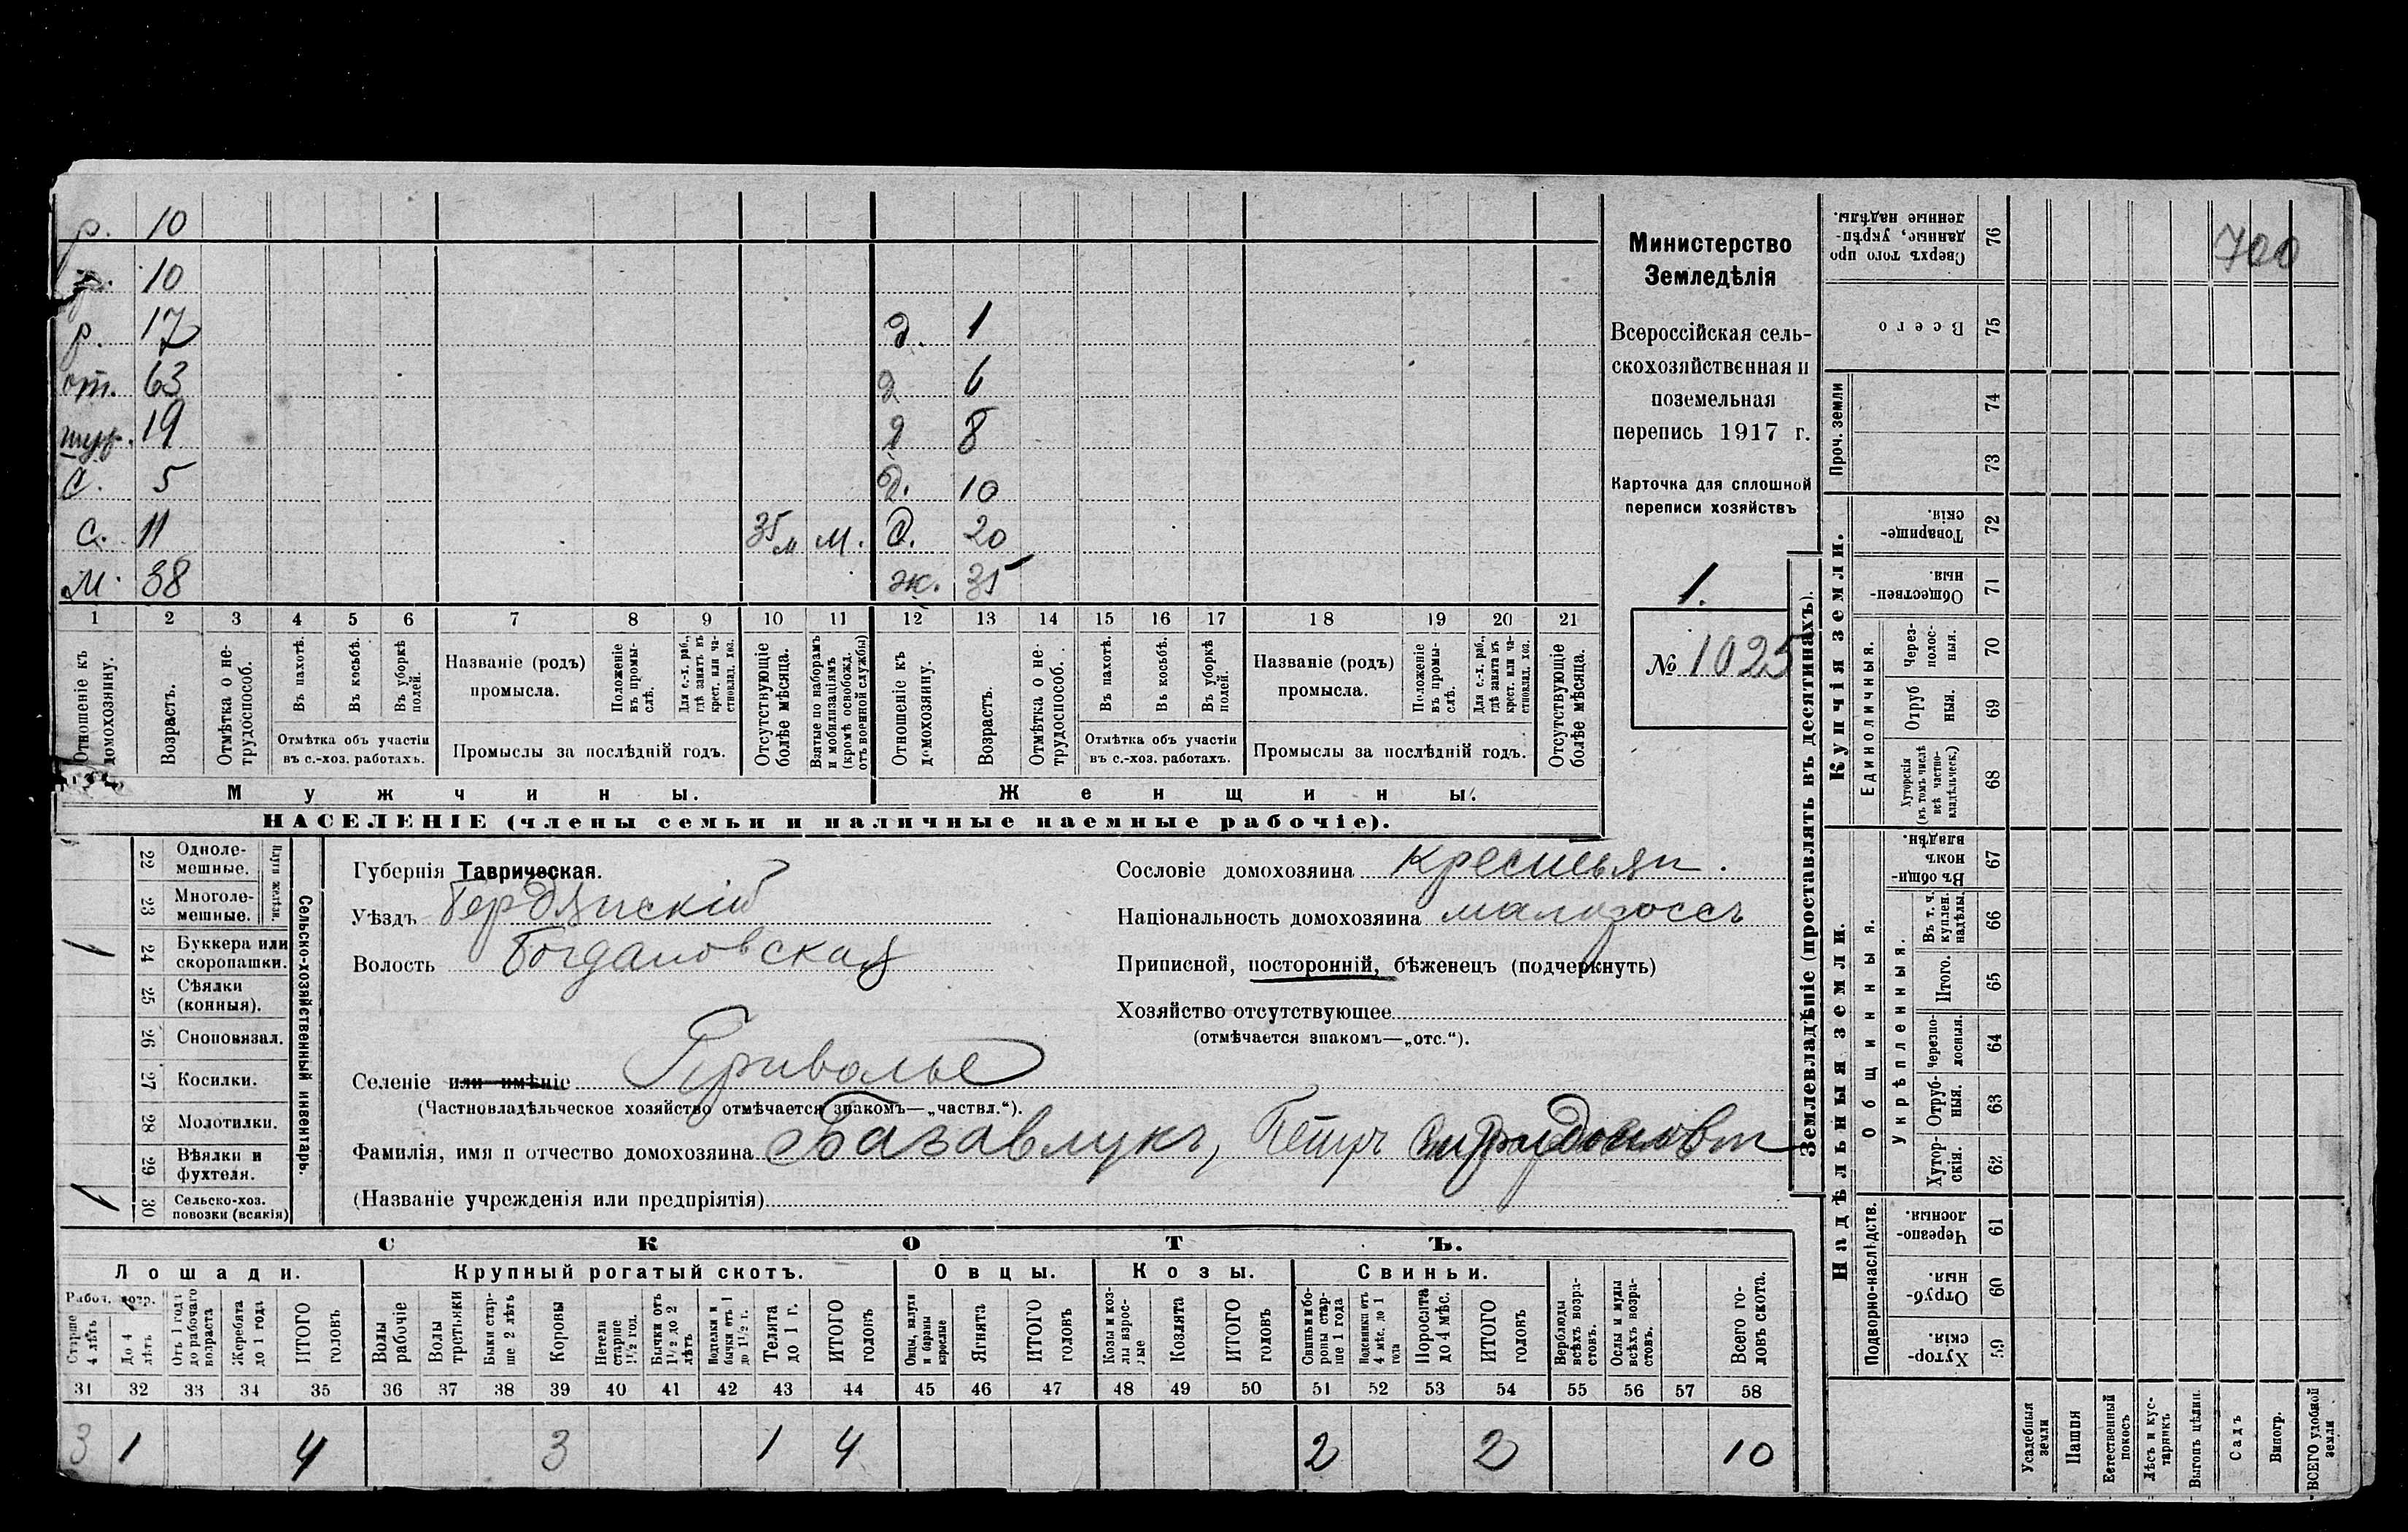 р. 10
р. 10
р. 17 д. 1
от. 63 д 6
шур. 19 д 8
С. 5 д. 10
С. 11 35 м м. С. 20
м. 38 ж. 35
1 2 3 4 5 6 7 8 9 10 11 12 13 14 15 16 17 18 19 20 21
Отношеніе къ домохозяину.
Возрастъ.
Отмѣтка о нетрудоспособ.
Въ пахотѣ.
Въ косьбѣ.
Въ уборкѣ полей.
Отмѣтка объ участіи въ с.-хоз. работахъ.
Названіе (родъ) промысла.
Положеніе въ промыслѣ.
Для с.-х. раб., гдѣ занятъ въ крест. или частновлад. хоз.
Промыслы за послѣдній годъ.
Отсутствующіе болѣе мѣсяца.
Взятые по наборамъ и мобилизаціямъ (кромѣ освобожд. отъ военной службы)
Отношеніе къ домохозяину.
Возрастъ.
Отмѣтка о нетрудоспособ.
Въ пахотѣ.
Въ косьбѣ.
Въ уборкѣ полей.
Отмѣтка объ участіи въ с.-хоз. работахъ.
Названіе (родъ) промысла.
Положеніе въ промыслѣ.
Для с.-х. раб., гдѣ занята въ крест. или частновлад. хоз.
Промыслы за послѣдній годъ.
Отсутствующіе болѣе мѣсяца.
Мужчины. Женщины.
НАСЕЛЕНІЕ (члены семьи и наличные наемные рабочіе).
Министерство
Земледѣлія
Всероссійская сель-
скохозяйственная и
поземельная
перепись 1917 г.
Карточка для сплошной
переписи хозяйствъ
1.
№ 1025
Сельско-хозяйственный инвентарь.
Плуги желѣзн.
22 Одноле-мешные.
23 Многоле-мешные.
1 24 Буккера или скоропашки.
25 Сѣялки (конныя).
26 Сноповязал.
27 Косилки.
28 Молотилки.
29 Вѣялки и фухтеля.
1 30 Сельско-хоз. повозки (всякія)
Губернія Таврическая.
Уѣздъ Бердянскій
Волость Богдановская
Селеніе или имѣніе Приволье
(Частновладѣльческое хозяйство отмѣчается знакомъ—„частвл.“).
Фамилія, имя и отчество домохозяина Базавлукъ, Петръ Спиридоновт
(Названіе учрежденія или предпріятія)
Сословіе домохозяина крестьян.
Національность домохозяина малороссъ
Приписной, посторонній, бѣженецъ (подчеркнуть)
Хозяйство отсутствующее
(отмѣчается знакомъ—„отс.“).
СКОТЪ.
Лошади. Крупный рогатый скотъ. Овцы. Козы. Свиньи.
Рабоч. возр.
Старше 4 лѣтъ
До 4 лѣтъ
Отъ 1 года до рабочаго возраста
Жеребята до 1 года
ИТОГО головъ
Волы рабочіе
Волы третьяки
Быки старше 2 лѣтъ
Коровы
Нетели старше 1½ год.
Бычки отъ 1½ до 2 лѣтъ
Подтелки и бычки отъ 1 до 1½ г.
Телята до 1 г.
ИТОГО головъ
Овцы, валухи и бараны взрослые
Ягнята
ИТОГО головъ
Козы и козлы взрослые
Козлята
ИТОГО головъ
Свиньи и боровы старше 1 года
Подсвинки отъ 4 мѣс. до 1 года
Поросята до 4 мѣс.
ИТОГО головъ
Верблюды всѣхъ возрастовъ.
Ослы и мулы всѣхъ возрастовъ.
Всего головъ скота.
31 32 33 34 35 36 37 38 39 40 41 42 43 44 45 46 47 48 49 50 51 52 53 54 55 56 57 58
3 1 4 3 1 4 2 2 10
Землевладѣніе (проставлять въ десятинахъ).
Надѣльныя земли. Купчія земли.
Подворно-наслѣдств.
Общинныя.
Укрѣпленныя.
Единоличныя.
Проч. земли
Сверхъ того проданные, укрѣпленные надѣлы. 76 700
Всего 75
74
73
Товарищескія. 72
Общественныя. 71
Черезполосныя. 70
Отрубныя. 69
Хуторскія (въ томъ числѣ всѣ частновладѣльческ.) 68
Въ общиномъ владѣн. 67
Въ т. ч. куплен. надѣлы 66
Итого. 65
Черезполосныя. 64
Отрубныя. 63
Хуторскія. 62
Черезполосныя. 61
Отрубныя. 60
Хуторскія. 59
Усадебныя земли
Пашня
Естественный покосъ
Лѣсъ и кустарникъ
Выгонъ цѣлин.
Садъ
Виногр.
ВСЕГО удобной земли